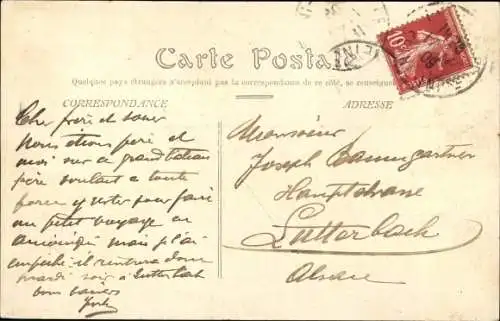 Carte Postale
Quelques pays étrangers n'acceptant pas la correspondance de ce côté, se renseigner
CORRESPONDANCE
ADRESSE
10c
Cher frère et sœur
Nous étions père et
moi sur ce grand bateau
père voulait a toute
force y rester pour faire
un petit voyage en
mais j'ai
empêché il rentrera donc
mardi soir à Lutterbach
bons baisers
Monsieur
Joseph Baumgartner
Hauptstrasse
Lutterbach
Alsace